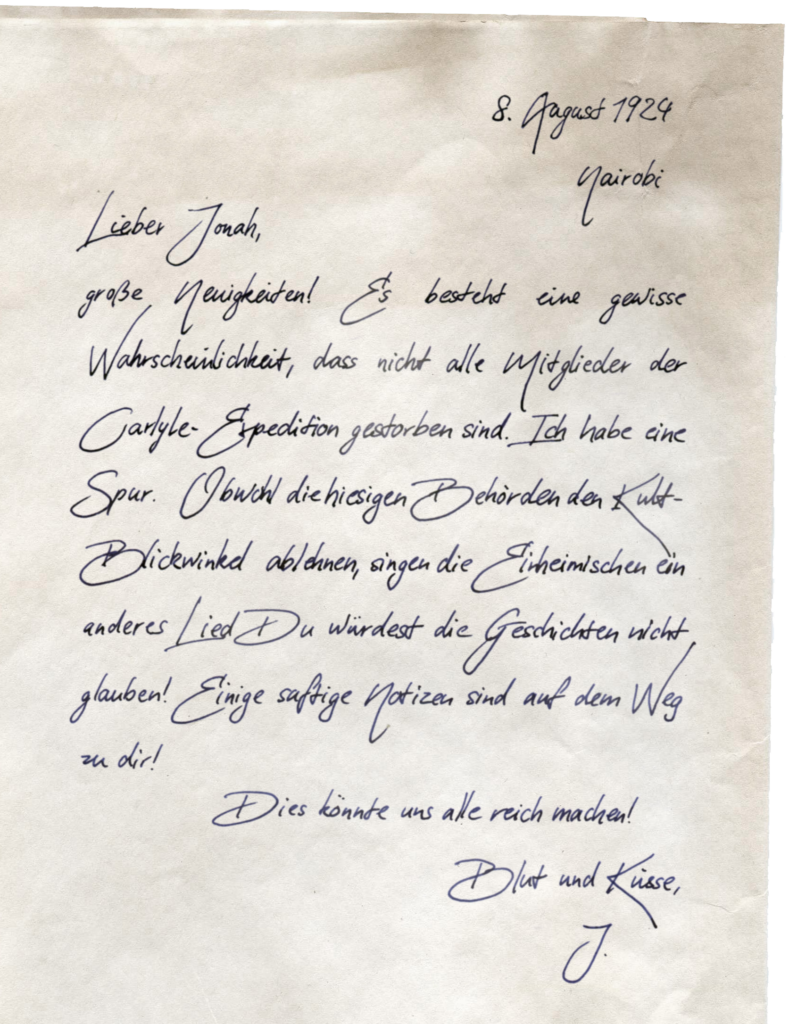 8. August 1924
Nairobi
Lieber Jonah,
große Neuigkeiten! Es besteht eine gewisse
Wahrscheinlichkeit, dass nicht alle Mitglieder der
Carlyle-Expedition gestorben sind. Ich habe eine
Spur. Obwohl die hiesigen Behörden den Kult-
Blickwinkel ablehnen, singen die Einheimischen ein
anderes Lied Du würdest die Geschichten nicht
glauben! Einige saftige Notizen sind auf dem Weg
zu dir!
Dies könnte uns alle reich machen!
Blut und Küsse,
J.